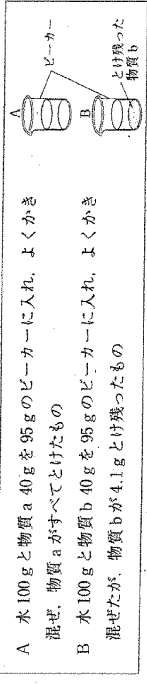 A 水100gと物質a 40gを95gのビーカーに入れ，よくかき
混ぜ，物質aがすべてとけたもの
B 水100gと物質b 40gを95gのビーカーに入れ，よくかき
混ぜたが，物質bが4.1gとけ残ったもの
A
ビーカー
B
とけ残った
物質b